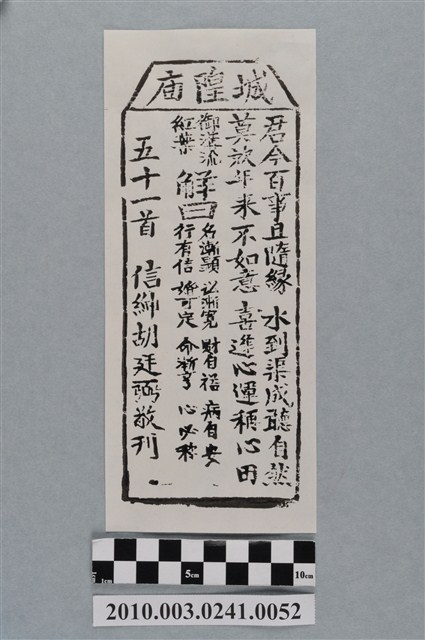 城隍庙
君今百事且隨緣 水到渠成聽自然
莫歎年来不如意 喜進心運稱心田
御溝流
紅葉
解曰
名漸顯 訟漸寬 財自裕 病自安
行有信 婚可定 命漸亨 心必称
五十一首 信紳胡廷弼敬刊
1cm 5cm 10cm
2010.003.0241.0052